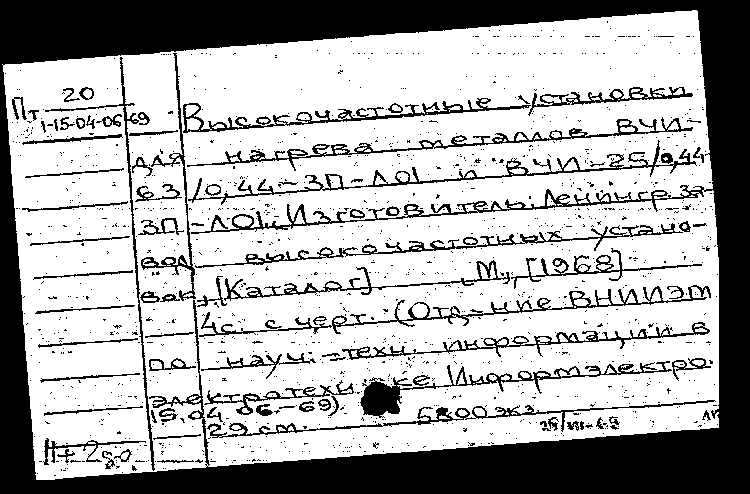 Пт 20
1-15-04-06-69
Высокочастотные установки
для нагрева металлов ВЧИ-
63/0,44-ЗП-ЛО1 и ВЧИ-25/0,44
ЗП-ЛО1. Изготовитель: Ленингр. за-
вод высокочастотных устано-
вок, [Каталог]. М., [1968]
4с. с черт. (Отд-ние ВНИИЭМ
по науч.-техн. информации в
электротехнике. Информэлектро.
15.04.06-69)
5800 экз.
29 см.